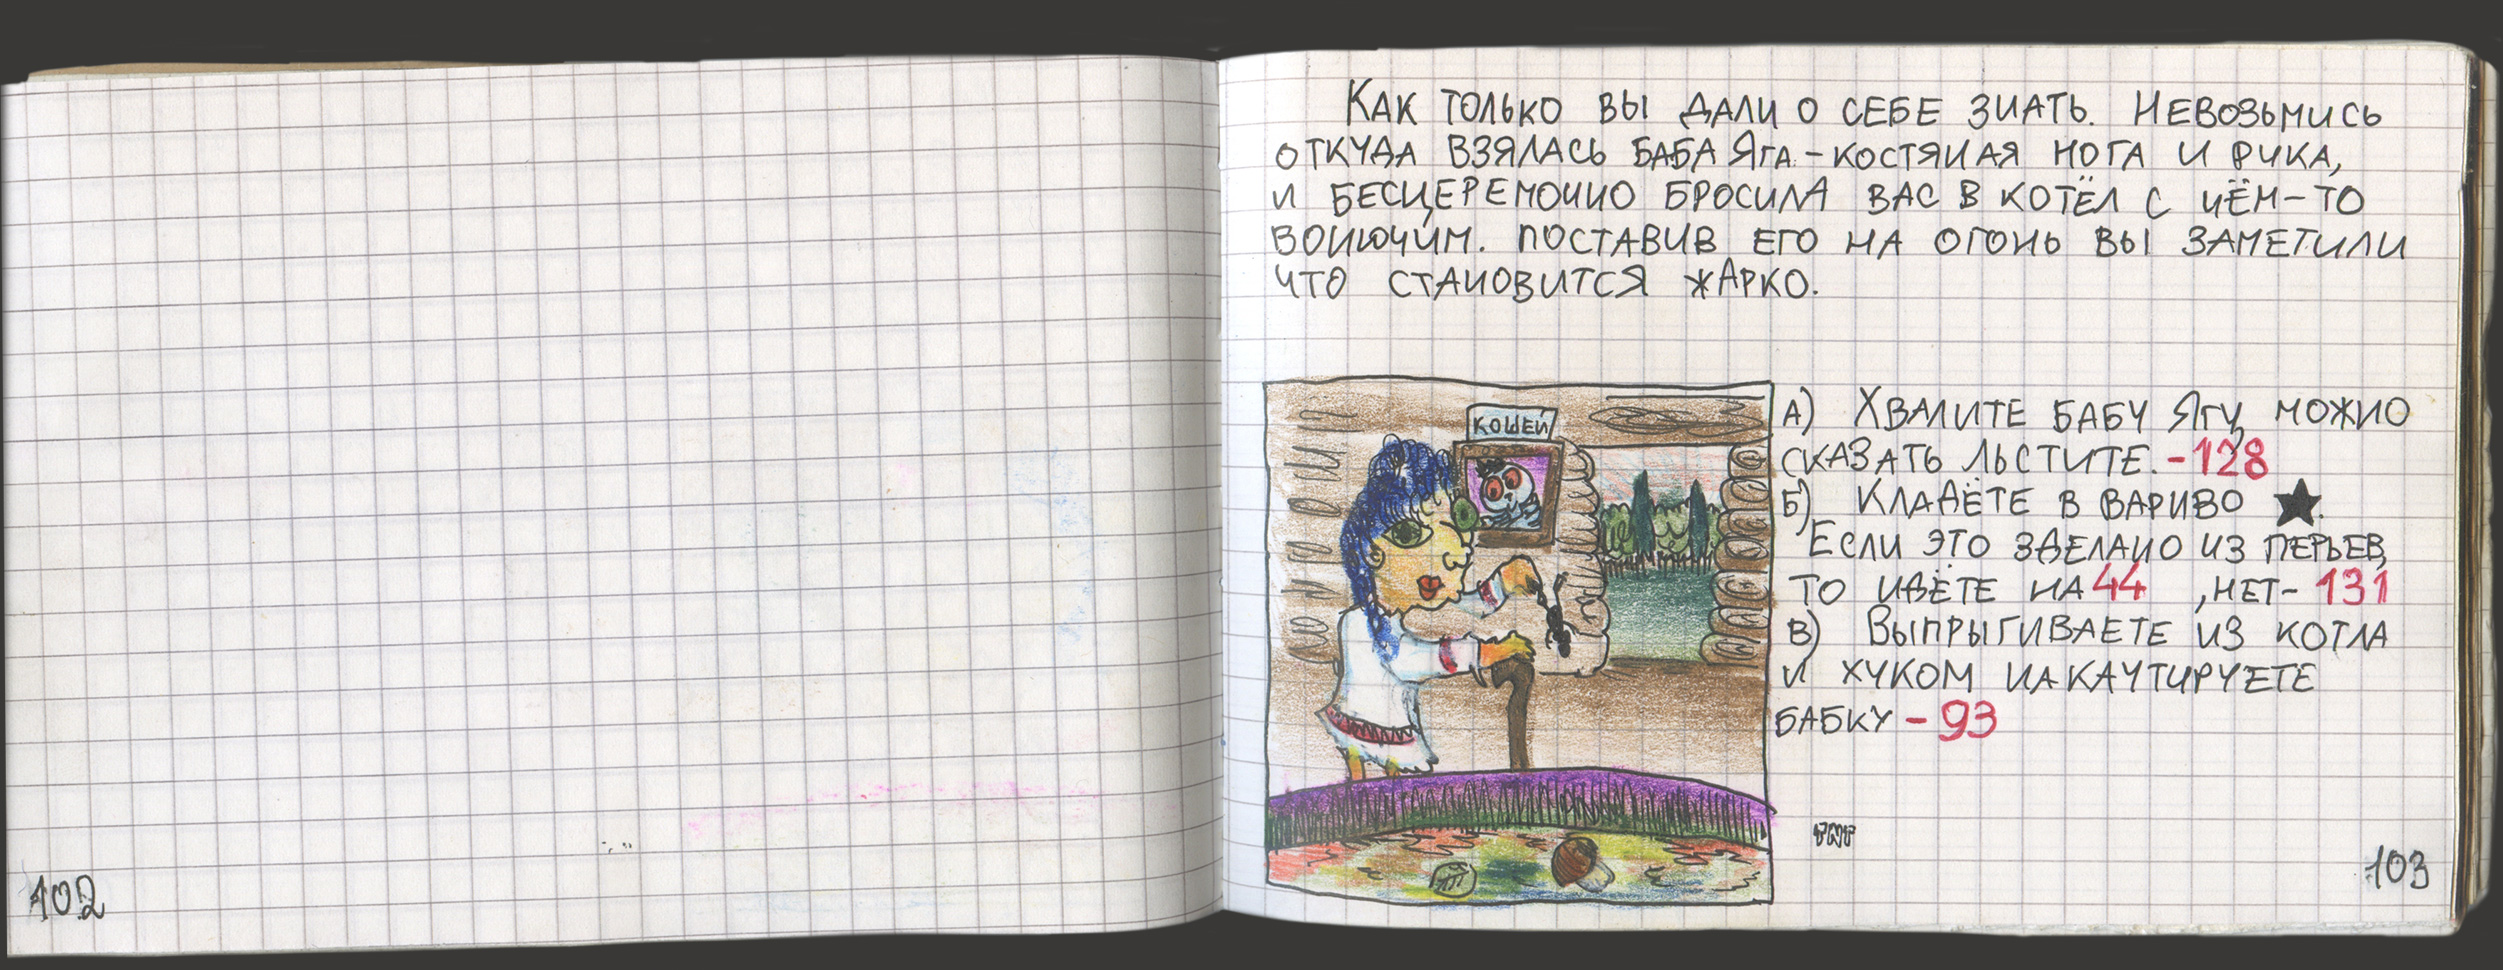 Как только вы дали о себе знать. Невозьмись
откуда взялась Баба Яга - костяная нога и рука,
и бесцеремонно бросила вас в котёл с чём-то
вонючим. Поставив его на огонь вы заметили
что становится жарко.
КОШЕЙ
А) Хвалите бабу Ягу, можно
сказать льстите. - 128
Б) Кладёте в вариво ★.
Если это зделано из перьев,
то идёте на 44 , нет - 131
В) Выпрыгиваете из котла
и хуком накаутируете
бабку - 93
102
103